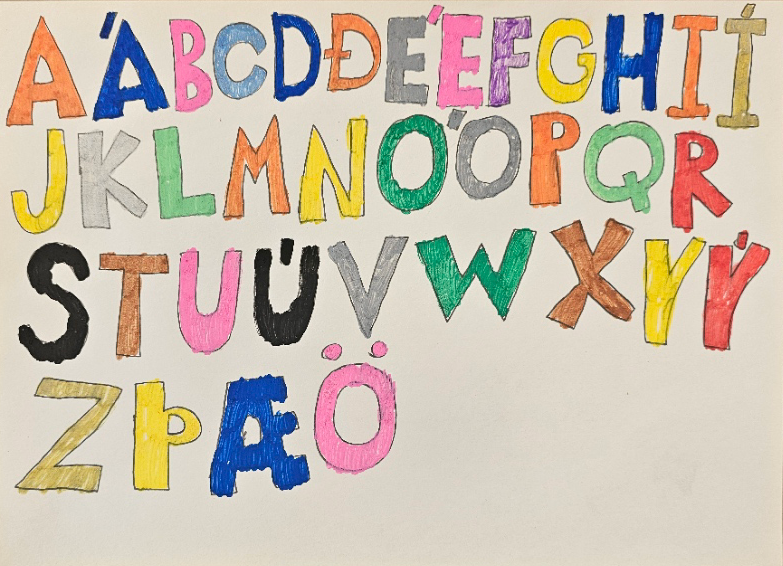 AÁBCDĐEÉFGHIÍ
JKLMNOÓPQR
STUÚVWXYÝ
ZÞÆÖ